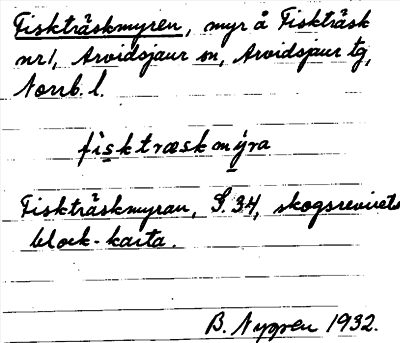 Fiskträskmyren, myr å Fiskträsk
nr1, Arvidsjaur sn, Arvidsjaur tg,
Norrb. l.
fisktræskmýra
Fiskträskmyran, S. 34, skogsrevirets
block-karta.
B. Nygren 1932.